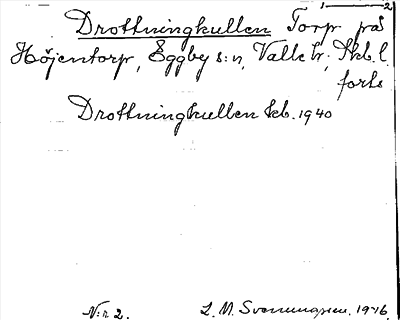 1 2
Drottningkullen Torp på
Höjentorp, Eggby s:n, Valle hd, Skb. l.
forts
Drottningkullen kb. 1940
N:r 2. L. M. Svenungsson. 1946.